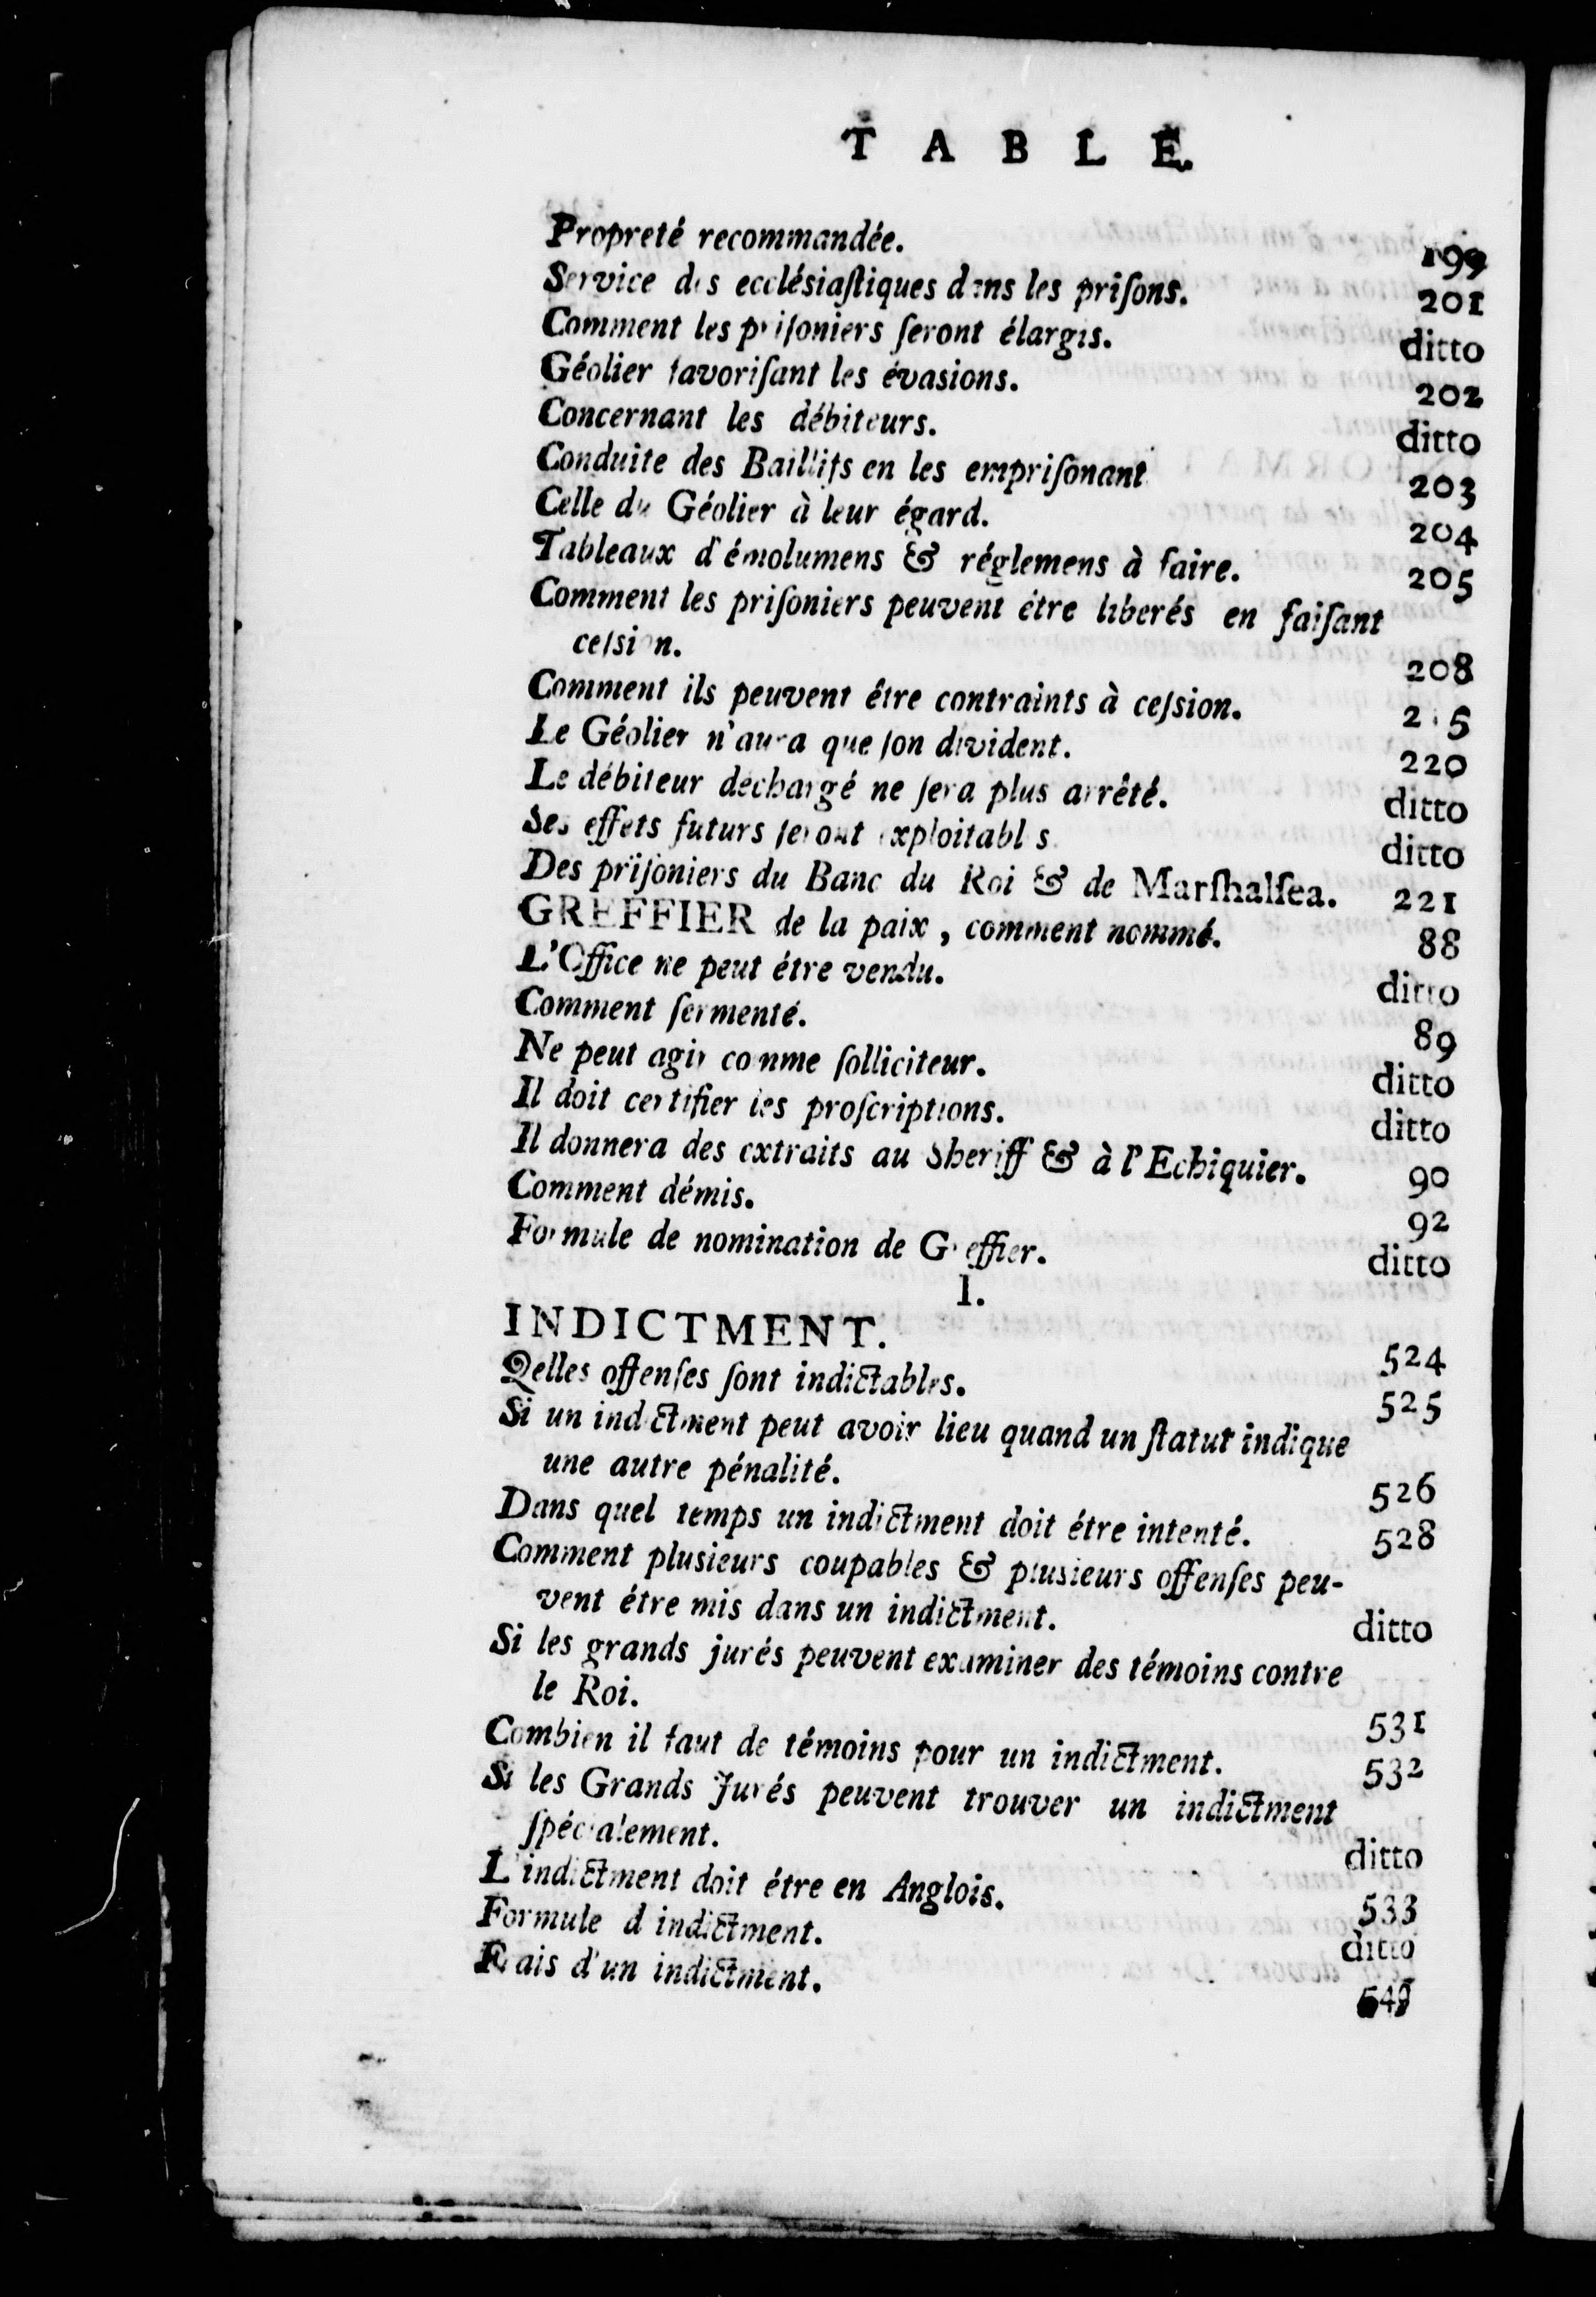 TABLE.
Propreté recommandée. 199
Service des ecclésiaſtiques dans les priſons. 201
Comment les priſoniers ſeront élargis. ditto
Géolier favoriſant les évasions. 202
Concernant les débiteurs. ditto
Conduite des Baillifs en les empriſonant 203
Celle du Géolier à leur égard. 204
Tableaux d'émolumens & réglemens à faire. 205
Comment les priſoniers peuvent étre liberés en faiſant
ceſsion. 208
Comment ils peuvent être contraints à ceſsion. 215
Le Géolier n'aura que ſon divident. 220
Le débiteur dechargé ne ſera plus arrêté. ditto
Ses effets futurs ſeront exploitables ditto
Des priſoniers du Banc du Roi & de Marſhalſea. 221
GREFFIER de la paix, comment nommé. 88
L'Office ne peut étre vendu. ditto
Comment ſermenté. 89
Ne peut agir comme ſolliciteur. ditto
Il doit certifier les proſcriptions. ditto
Il donnera des extraits au Sheriff & à l'Echiquier. 90
Comment démis. 92
Formule de nomination de Greffier. ditto
I.
INDICTMENT. 524
Qelles offenſes ſont indictables. 525
Si un indictment peut avoir lieu quand un ſtatut indique
une autre pénalité. 526
Dans quel temps un indictment doit étre intenté. 528
Comment plusieurs coupables & plusieurs offenſes peu-
vent étre mis dans un indictment. ditto
Si les grands jurés peuvent examiner des témoins contre
le Roi. 531
Combien il faut de témoins pour un indictment. 532
Si les Grands Jurés peuvent trouver un indictment
ſpécialement. ditto
L'indictment doit étre en Anglois. 533
Formule d'indictment. ditto
Frais d'un indictment.